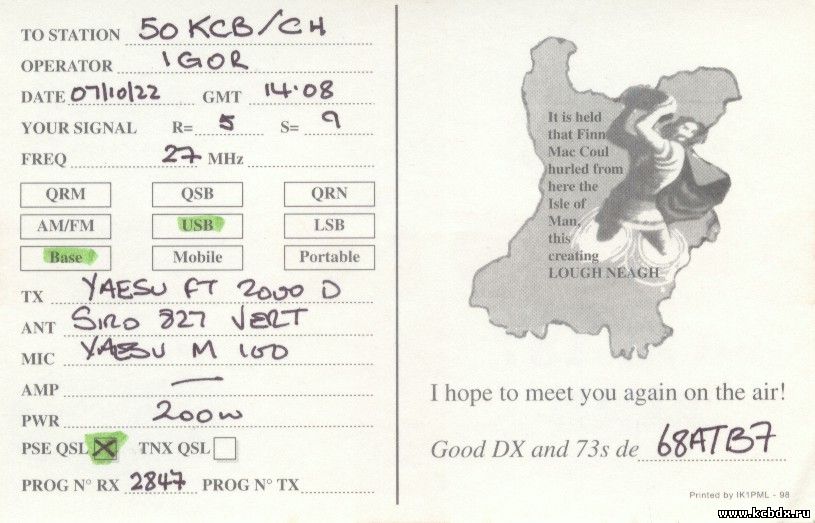 TO STATION 50 KCB/CH
OPERATOR IGOR
DATE 07/10/22 GMT 14.08
YOUR SIGNAL R= 5 S= 9
FREQ 27 MHz
QRM QSB QRN
AM/FM USB LSB
Base Mobile Portable
TX YAESU FT 2000 D
ANT SIRO 827 VERT
MIC YAESU M 100
AMP —
PWR 200W
PSE QSL X TNX QSL
PROG N° RX 2847 PROG N° TX
It is held
that Finn
Mac Coul
hurled from
here the
Isle of
Man,
this
creating
LOUGH NEAGH
I hope to meet you again on the air!
Good DX and 73s de 68ATB7
Printed by IK1PML - 98
www.kcbdx.ru